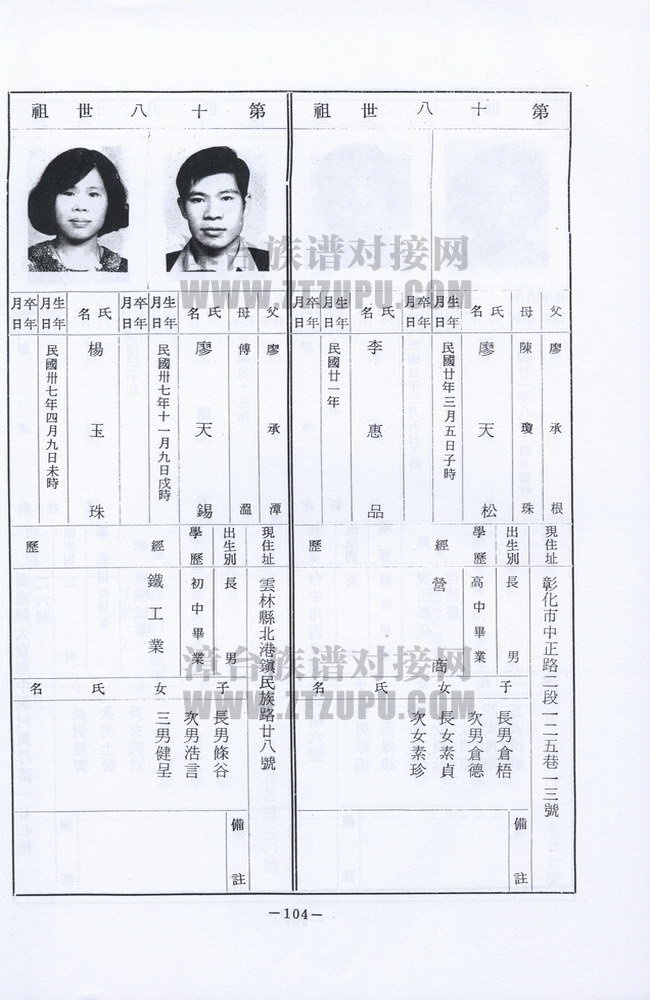 第十八世祖
父 廖承根
母 陳瓊珠
氏名 廖天松
生年月日 民國廿年三月五日子時
卒年月日
氏名 李惠品
生年月日 民國廿一年
卒年月日
現住址 彰化市中正路二段一二五巷一三號
出生別 長男
學歷 高中畢業
經歷 營商
子女氏名
長男倉梧
次男倉德
長女素貞
次女素珍
備註
第十八世祖
父 廖承潭
母 傅溫
氏名 廖天錫
生年月日 民國卅七年十一月九日戌時
卒年月日
氏名 楊玉珠
生年月日 民國卅七年四月九日未時
卒年月日
現住址 雲林縣北港鎮民族路廿八號
出生別 長男
學歷 初中畢業
經歷 鐵工業
子女氏名
長男條谷
次男浩言
三男健呈
備註
漳台族谱对接网
WWW.ZTZUPU.COM
漳台族谱对接网
WWW.ZTZUPU.COM
－104－